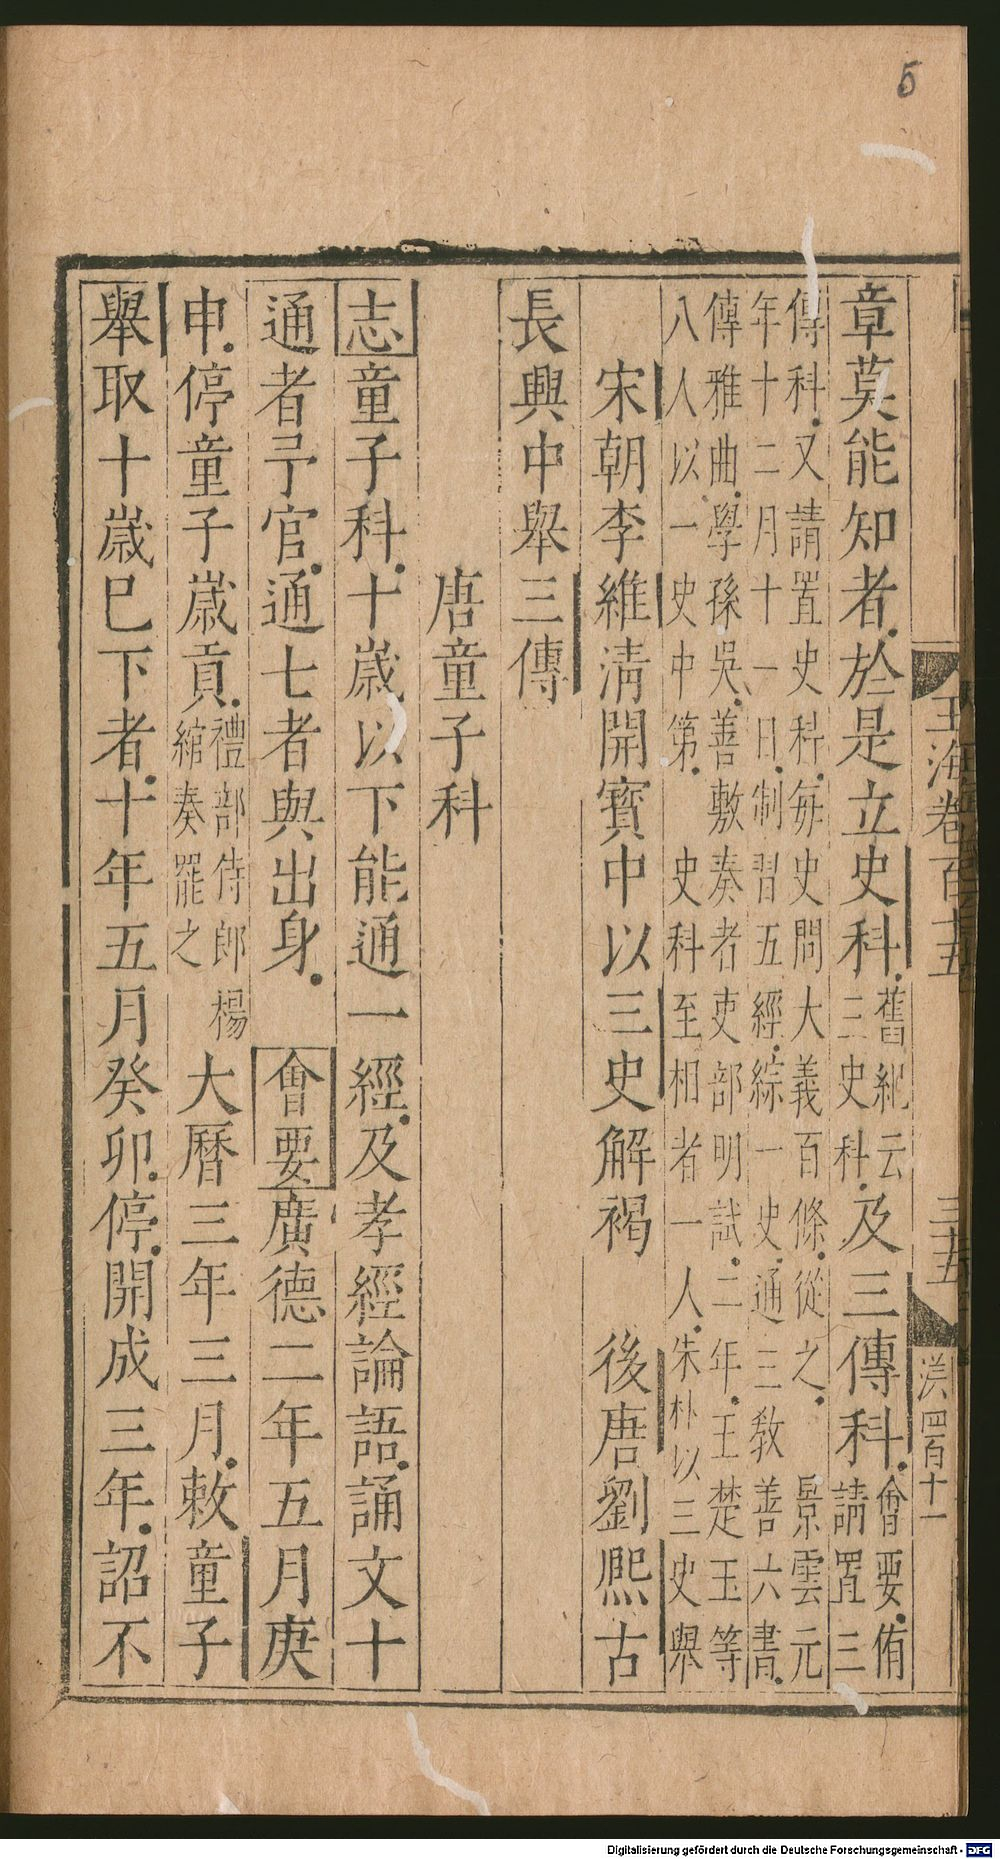 5
玉海卷百十五
三十五
洪四百十一
章莫能知者於是立史科舊紀云三史科及三傳科會要侑請置三
傳科又請置史科每史問大義百條從之 景雲元
年十二月十一日制習五經綜一史通三教善六書
傳雅曲學孫吳善敷奏者吏部明試二年王楚玉等
八人以一史中第 史科至相者一人朱朴以三史舉
宋朝李維清開寶中以三史解褐 後唐劉熙古
長興中舉三傳
唐童子科
志童子科十歲以下能通一經及孝經論語誦文十
通者予官通七者與出身 會要廣德二年五月庚
申停童子歲貢禮部侍郎楊綰奏罷之 大曆三年三月敕童子
舉取十歲已下者十年五月癸卯停開成三年詔不
Digitalisierung gefördert durch die Deutsche Forschungsgemeinschaft - DFG